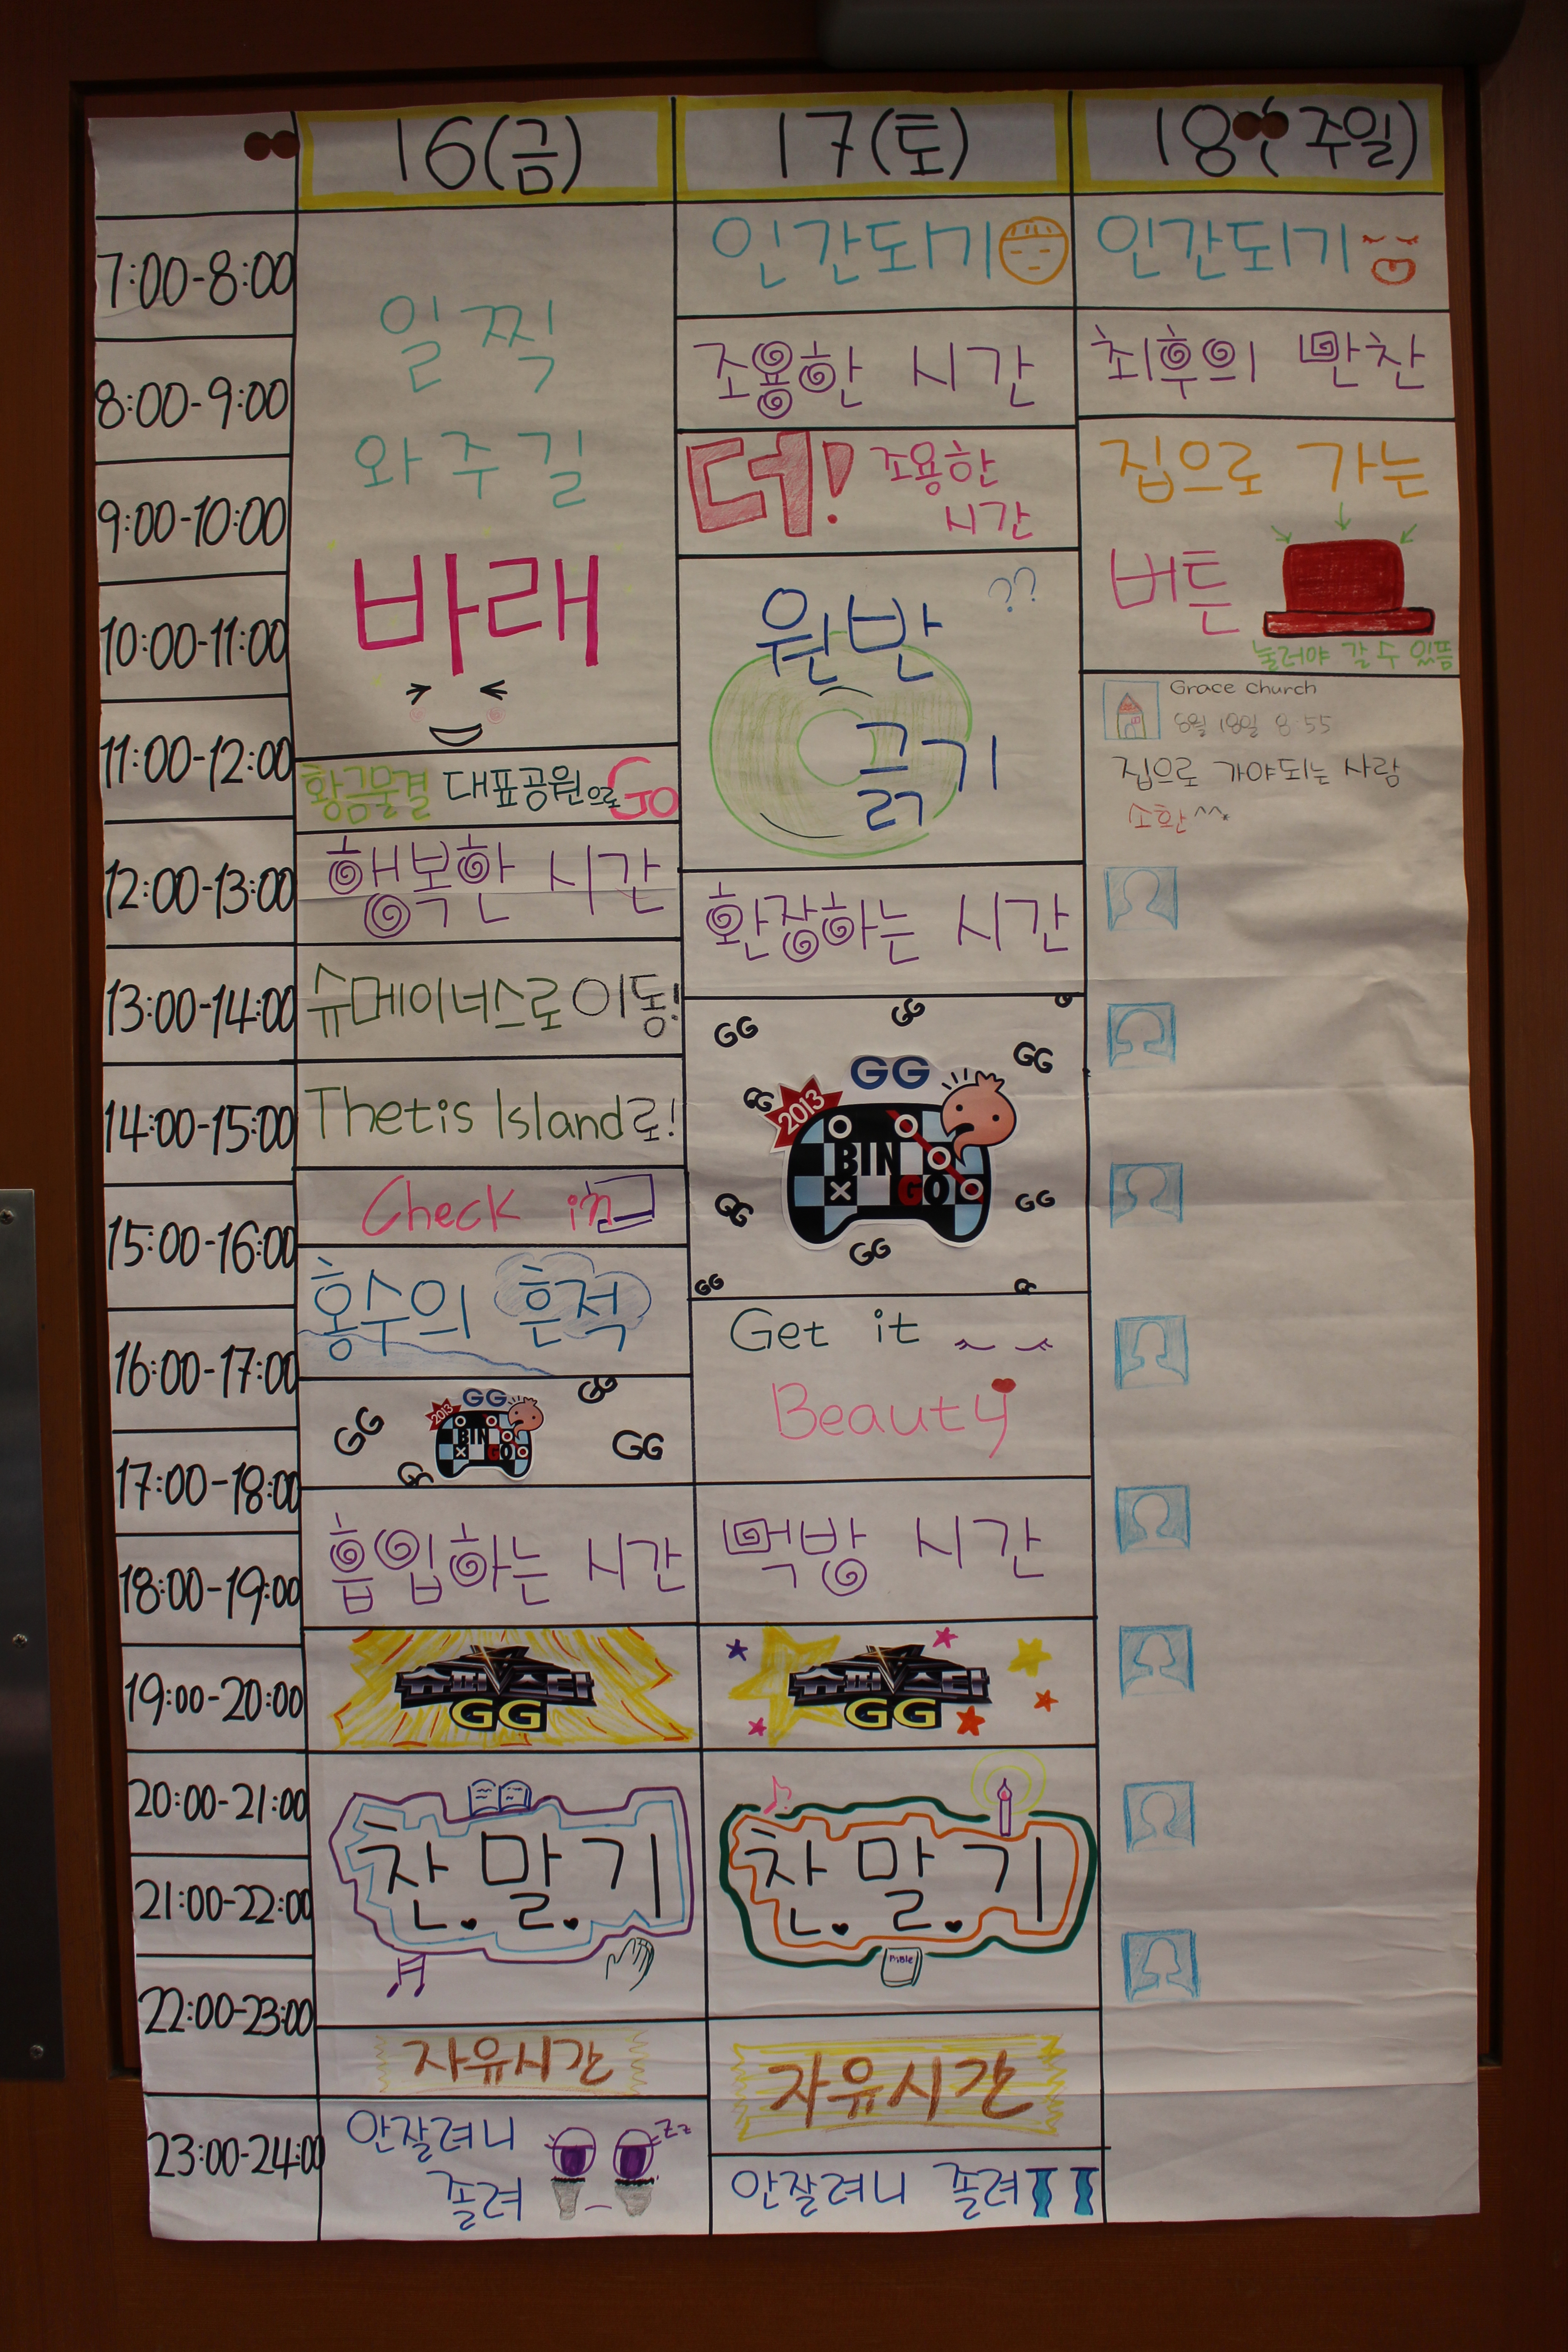 16(금)
17(토)
18(주일)
7:00-8:00
8:00-9:00
9:00-10:00
10:00-11:00
11:00-12:00
12:00-13:00
13:00-14:00
14:00-15:00
15:00-16:00
16:00-17:00
17:00-18:00
18:00-19:00
19:00-20:00
20:00-21:00
21:00-22:00
22:00-23:00
23:00-24:00
일찍
와주길
바래
황금물결 대표공원으로 GO
행복한 시간
슈메이너스로 이동!
Thetis Island로!
Check in
홍수의 흔적
GG
GG
GG
GG
GG
2013
BIN
GO
흡입하는 시간
슈퍼스타
GG
찬.말.기
자유시간
안잘려니
졸려
zz
인간되기
조용한 시간
더! 조용한
시간
원반 ??
긁기
환장하는 시간
GG
GG
GG
GG
GG
GG
GG
GG
GG
GG
2013
BIN
GO
Get it
Beauty
먹방 시간
슈퍼스타
GG
찬.말.기
Bible
자유시간
안잘려니 졸려
인간되기
최후의 만찬
집으로 가는
버튼
눌러야 갈 수 있뜸
Grace church
8월 18일 8:55
집으로 가야되는 사람
소환^^*